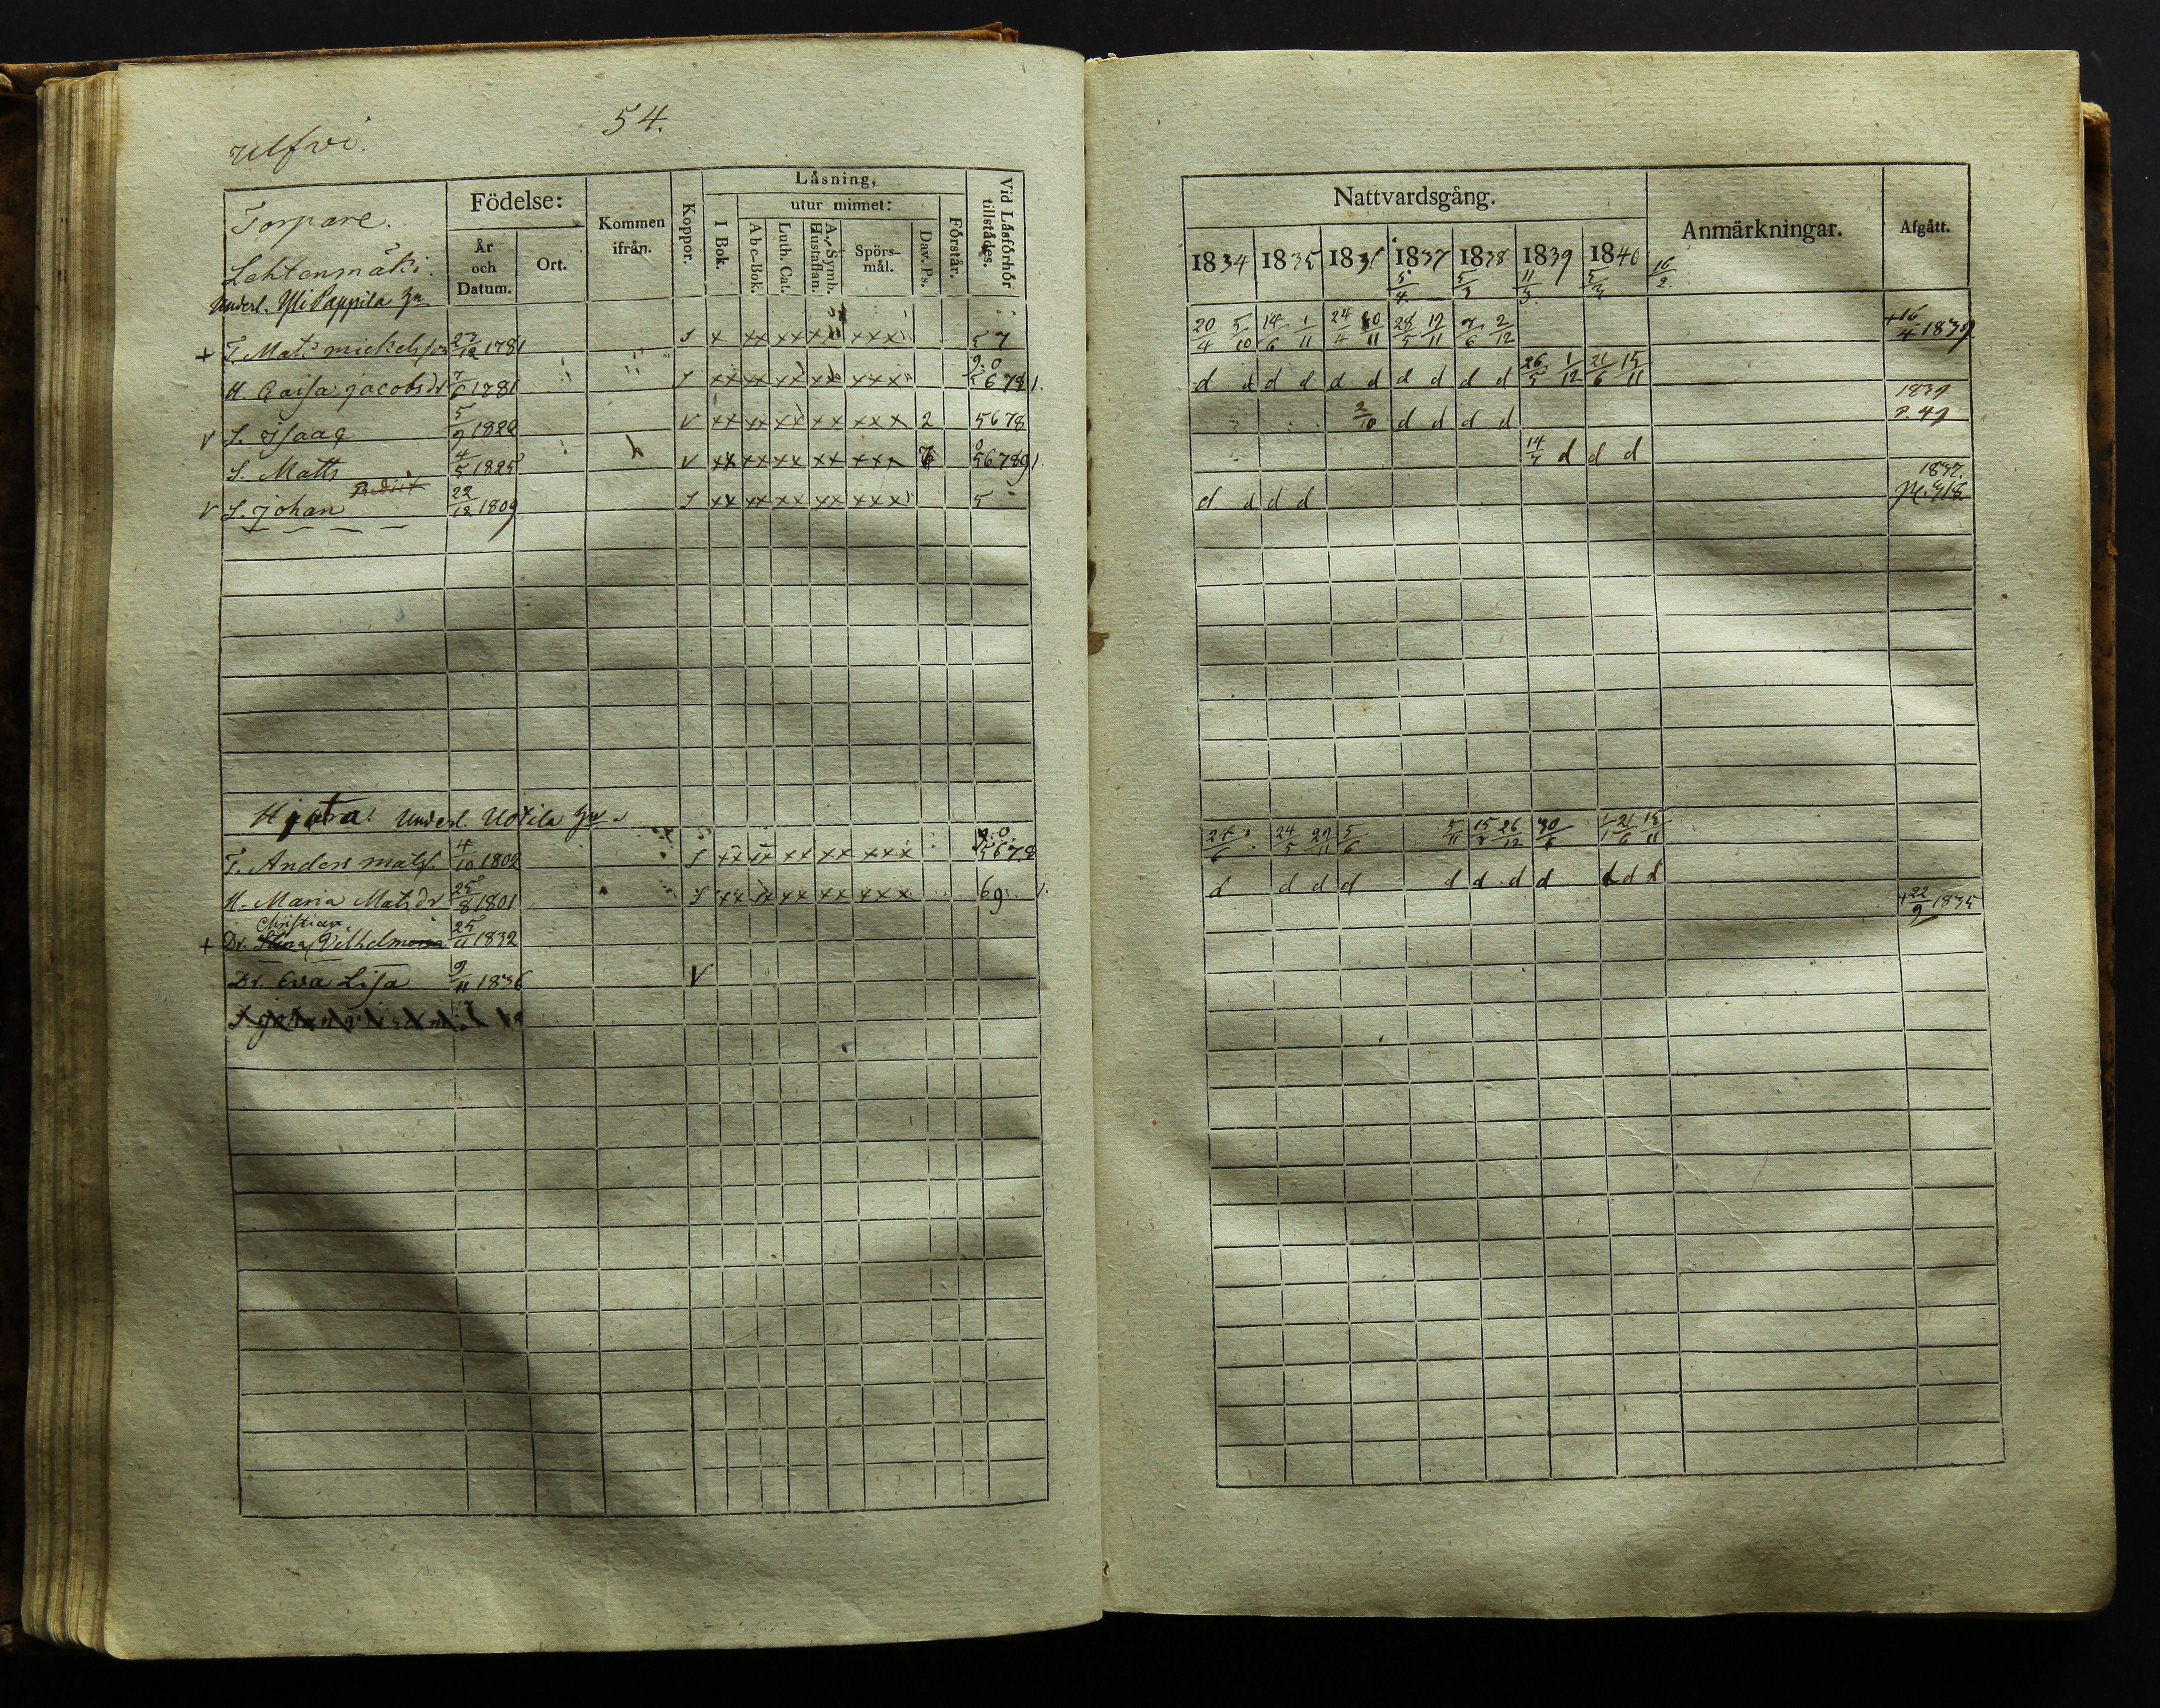 54.
Ulfvi.
Torpare.
Lehtenmäki.
Underl. Ylli Pappila
Födelse:
År och Datum.
Ort.
Kommen ifrån.
Koppor.
Låsning,
I Bok.
utur minnet:
Abc-Bok.
Luth. Cat.
A. Symb. Hustaflan.
Spörs-mål.
Dav. Ps.
Förstår.
Vid Låsförhör tillstådes.
+ T. Matts mickelsson 27/12 1781 S x xx xx xx xxx 5 7
H. Caisa Jacobsdr 7/6 1781 S xx xx xx xx xxx 9.0 5678 1.
V S. Isaac 5/9 1820 V xx xx xx xx xxx 2 5678
S. Matts 4/5 1825 V xx xx xx xx xxx 0 56789 1.
V S. Johan 22/12 1809 S xx xx xx xx xxx 5
Hjota. Underl. Uotila
T. Anders matss. 4/10 1802 S xx xx xx xx xxx 9.0. 5678
H. Maria Matsdr 25/8 1801 S xx xx xx xx xxx 69 1.
Christian
+ Dr. Stina Vilhelmina 25/11 1832
Dr. Eva Lisa 9/11 1836 V
Nattvardsgång.
Anmärkningar.
Afgått.
1834 1835 1836 1837 1838 1839 1840
5/4 5/3 11/3 5/3 16/2.
20/4 5/10 14/6 1/11 24/4 10/11 28/5 12/11 7/6 2/12 +16/4 1839
d d d d d d d d d d 26/5 1/12 21/6 15/11
2/10 d d d d 1839 P. 49
14/7 d d d
d d d d 1837.
24/6 24/5 29/11 5/6 5/11 15/7 26/12 30/6 1/1 21/6 15/11
d d d d d d d d d d d
+22/9 1835